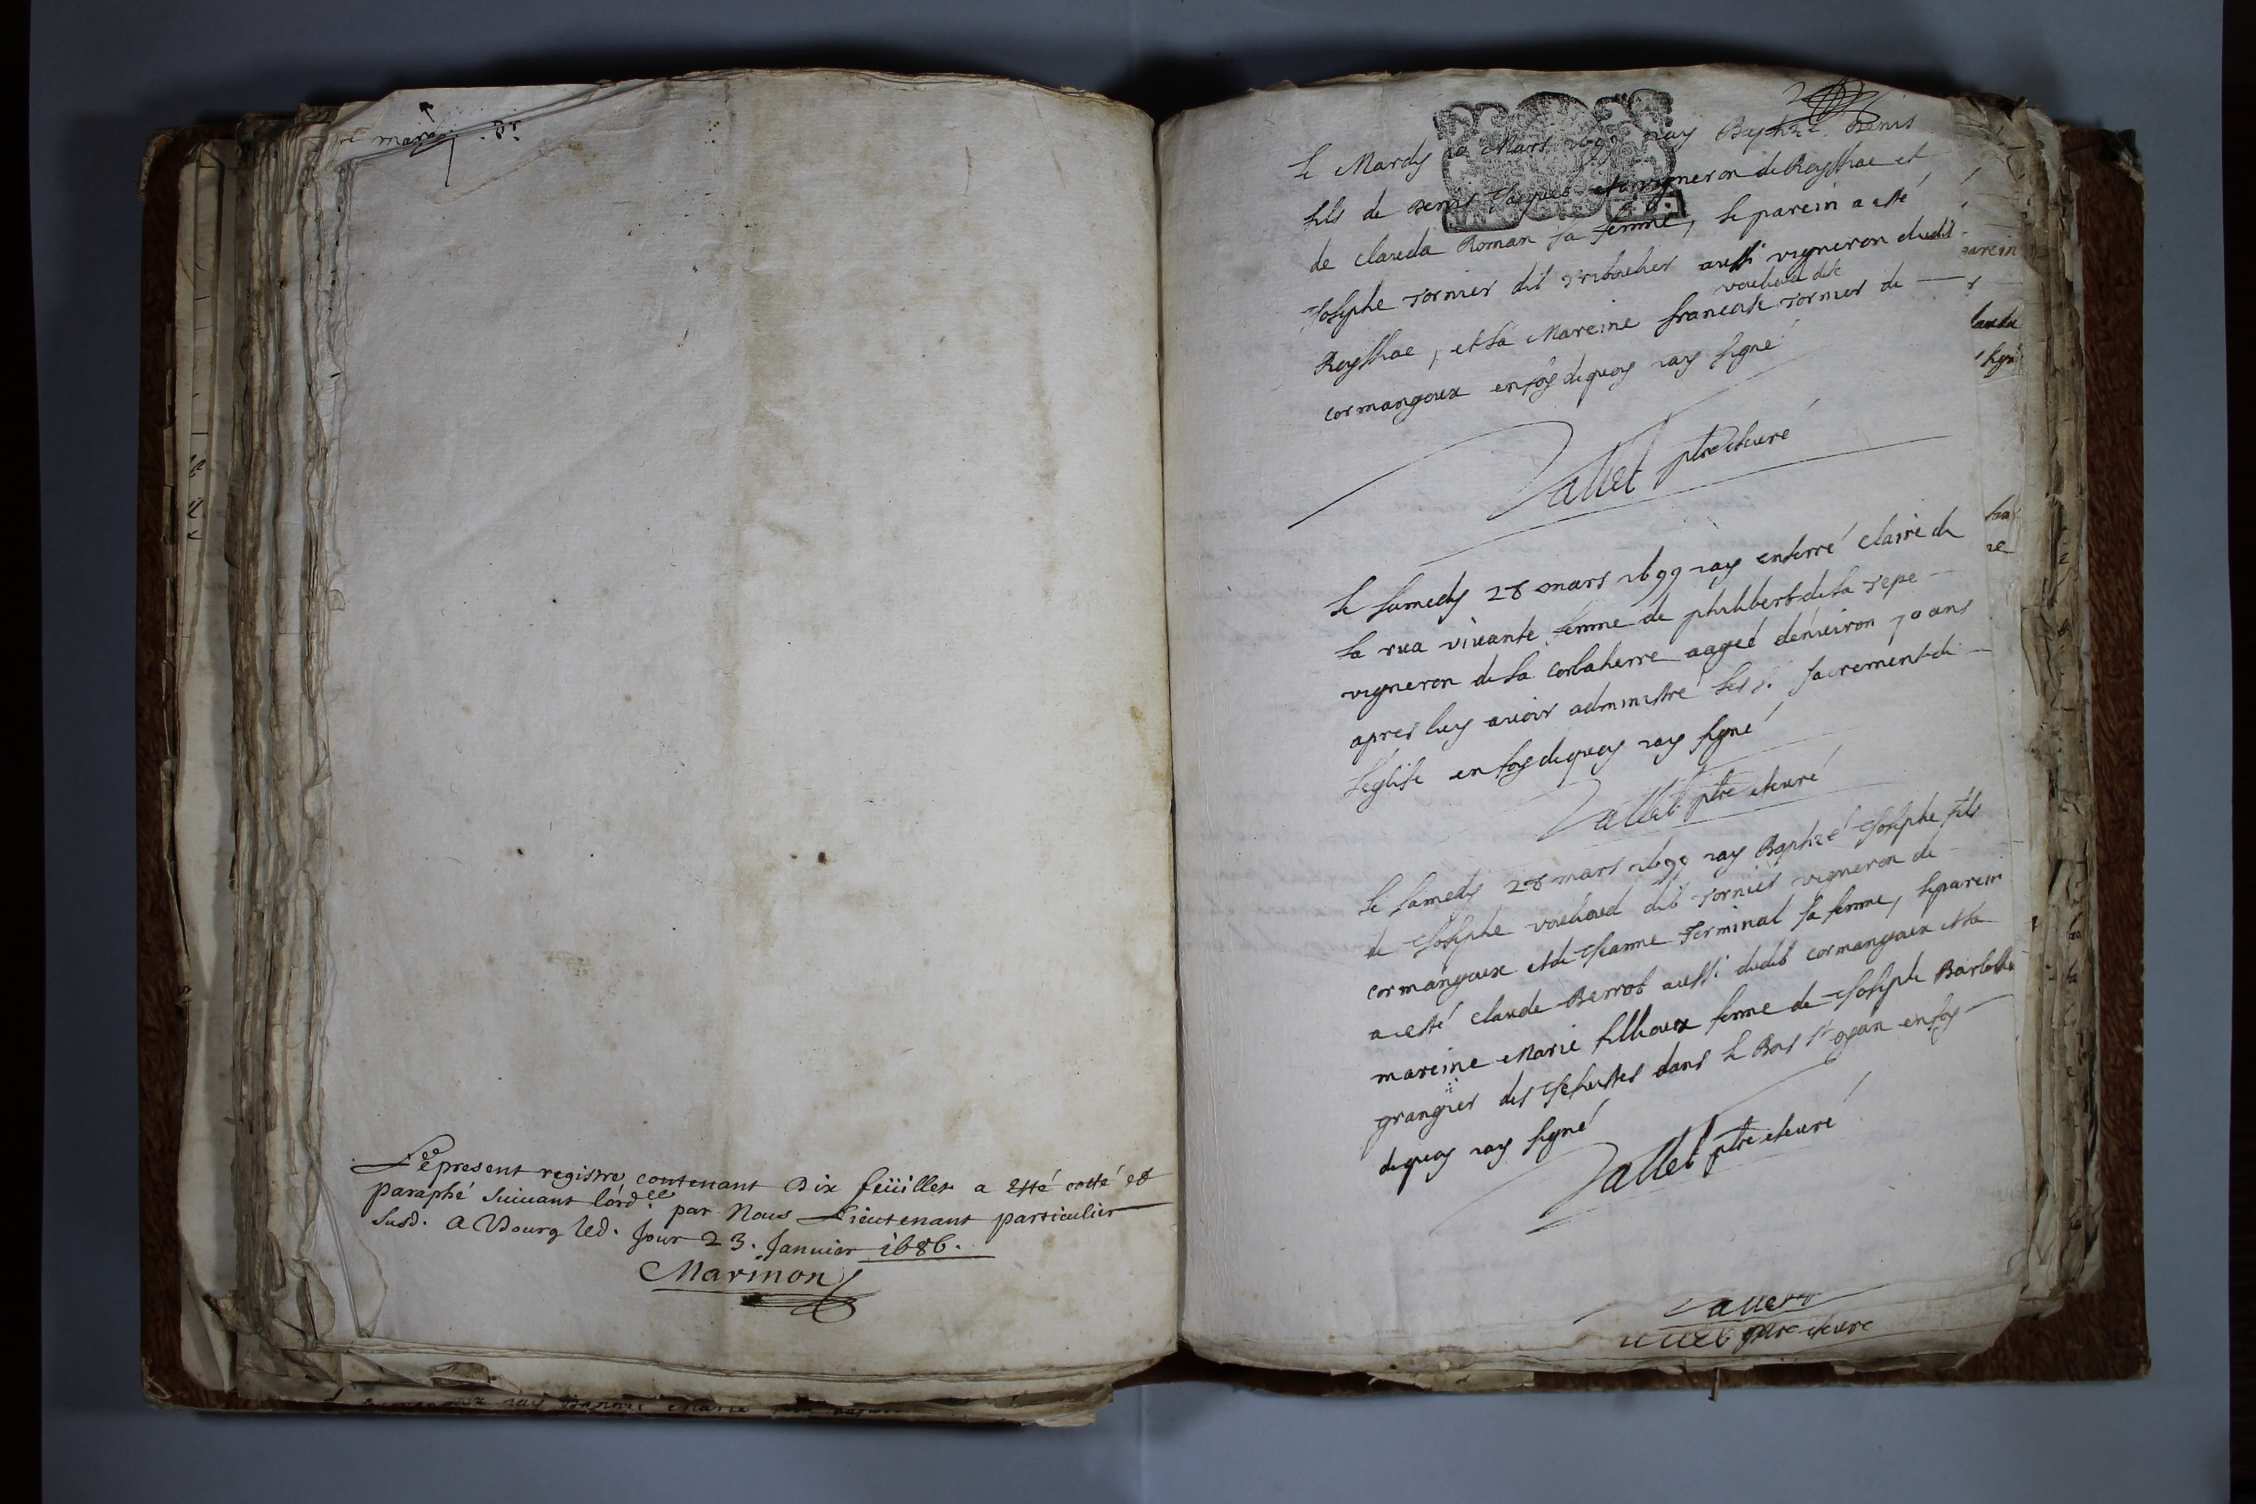 mardy
Le present registre contenant Dix feüillet a Esté cotté et
paraphé suiuant lord.ce par Nous Lieutenant particulier
susd. A Bourg led. Jour 23. Januier 1686.
Marinon
2
Le Mardy 10 Mars 1699 iay Baptizé Denis
fils de Denis Jacquet vigneron de Roissiac et
de Clauda Roman sa femme, le parein a esté
Josephe Tornier dit aussi vigneron dudit
voulioud dite
Roissiac, et la Mareine francoise Tornier de
cormangoux en foy dequoy iay signé
Vallet ptre &curé
Le samedy 28 mars 1699 iay enterré Claire de
la rua viuante femme de philibert de la Tepe
vigneron de la aagée d'enuiron 70 ans
apres luy auoir administré les s. sacrement de
l'eglise en foy dequoy iay signé
Vallet ptre &curé
Le samedy 28 mars 1699 iay Baptizé Josephe fils
de Josephe voulioud dit Tornier vigneron de
cormangoux et de Jeanne Terminal sa femme, le parein
a esté Claude Berrot aussi dudit cormangoux et la
mareine Marie fillioux femme de Joseph
grangier des Jesuites dans le Bois st oyan en foy
dequoy iay signé
Vallet ptre &curé
parein
lauda
signé
ptre &curé